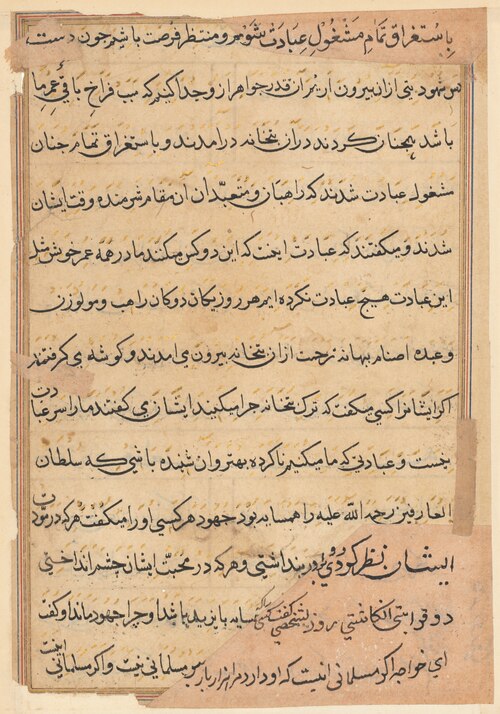 باستغراق تمام مشغول عبادت شویم و منتظر فرصت باشیم چون دست
بت از بیرون آریم آن قدر جواهر از وجدا کنیم که سبب فراخ باقی عمر ما
باشد همچنان کردند در آن بتخانه در آمدند و باستغراق تمام چنان
مشغول عبادت شدند که راهبان و متعبدان آن مقام شرمنده وقت ایشان
شدند و میگفتند که عبادت اینست که این دو کس میکنند ما در همه عمر خویش مثل
این عبادت هیچ عبادت نکرده ایم هر روز یکان دوکان راهب و
وعبده اصنام بهانه زحمت از آن بتخانه بیرون می آمدند و گوشه می گرفتند
اگر ایشانرا کسی میگفت که ترک بتخانه چرا میکنید ایشان می گفتند ما را سر عبادت
نیست و عبادتی که ما میکنیم ناکرده بهتر و آن شنیده باشی که سلطان
العارفین رحمة الله علیه را همسایه بود جهود هر کسی او را میگفت هر که در
ایشان نظر کردی و هر که در محبت ایشان چشم انداختی
روزی شخصی گفت همسایه بایزید باشد و چرا جهود ماند او گفت
ای خواجه اگر مسلمانی اینست که او دارد مرا هزار بار مسلمانی نیست و اگر مسلمانی اینست